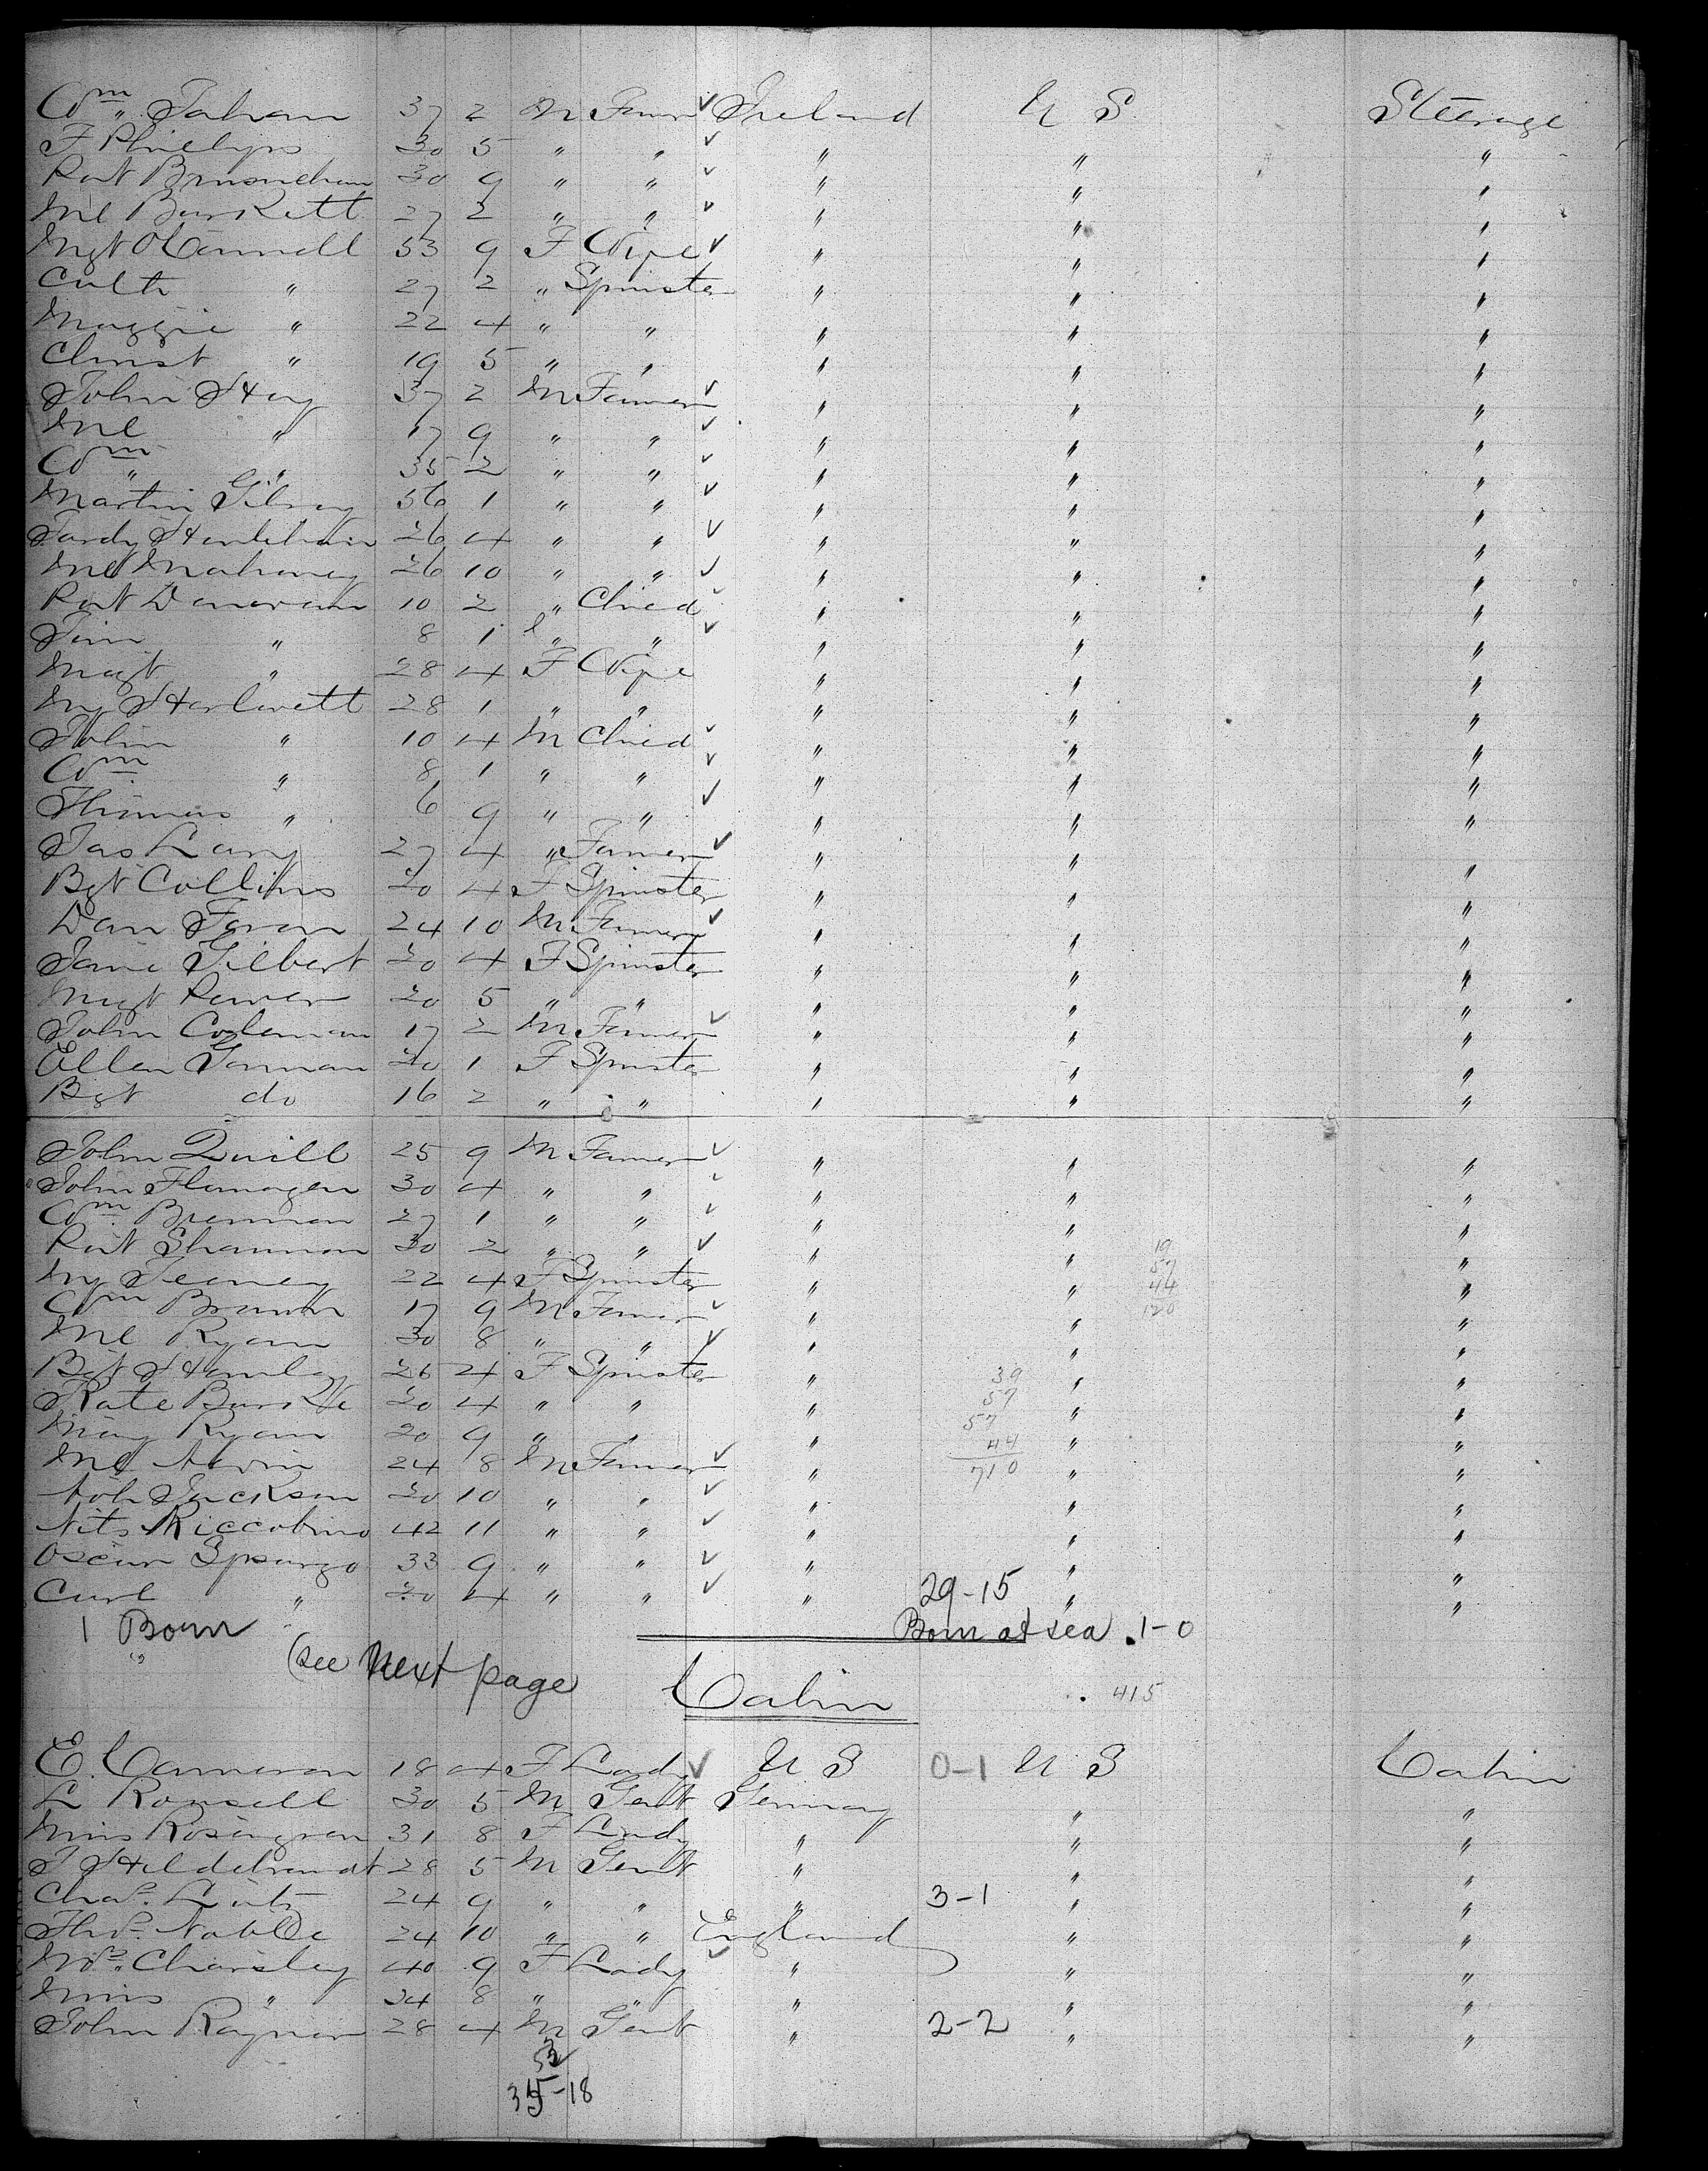 Wm. Tahan 37 2 M Farmer ✓ Ireland U S Steerage
F Phillips 30 5 " " ✓ " " "
Pat Brusnehan 30 9 " " ✓ " " "
Ml Burkett 27 2 " " ✓ " " "
Mgt OConnell 53 9 F Wife ✓ " " "
Cath " 27 2 " Spinster " " "
Maggie " 22 4 " " " " "
Christ " 19 5 " " " " "
John Hay 37 2 M Farmer ✓ " " "
Ml " 17 9 " " ✓ " " "
Wm " 35 2 " " ✓ " " "
Martin Gilroy 56 1 " " ✓ " " "
26 4 " " ✓ " " "
Ml Mahoney 26 10 " " ✓ " " "
Pat Donovan 10 2 " Child ✓ " " "
Tim " 8 1 " " ✓ " " "
Magt " 28 4 F Wife " " "
My Hartnett 28 1 " " " " "
John " 10 4 M Child ✓ " " "
Wm " 8 1 " " ✓ " " "
Thomas " 6 9 " " ✓ " " "
Jas Lang 27 4 " Farmer ✓ " " "
Bgt Collins 20 4 F Spinster " " "
Dan Foran 24 10 M Farmer ✓ " " "
Jane Gilbert 20 4 F Spinster " " "
Magt Power 20 5 " " " " "
John Coleman 17 2 M Farmer ✓ " " "
Ellen Gorman 20 1 F Spinster " " "
Bgt do 16 2 " " " " "
John Quill 25 9 M Farmer ✓ " " "
John Flanagen 30 4 " " ✓ " " "
Wm Brennan 27 1 " " ✓ " " "
Pat Shannon 30 2 " " ✓ " " " 19
57
My Feeney 22 4 F Spinster " " " 44
Wm Brown 17 9 M Farmer ✓ " " " 120
Ml Ryan 30 8 " " ✓ " " "
Bgt Hanley 26 4 F Spinster " 39 " "
Kate Burke 20 4 " " " 57 " "
Mary Ryan 20 9 " " " 57 " "
Ml 24 8 M Farmer ✓ " 44 " "
710
Joh Jackson 30 10 " " ✓ " " "
Nits Riccobino 42 11 " " ✓ " " "
Oscar Spsargo 33 9 " " ✓ " " "
Carl " 20 4 " " ✓ " 29-15 " "
1 Born " Born at sea . 1-0
" (see Next page
Cabin 415
E. Cameron 18 4 F Lady ✓ U S 0-1 U S Cabin
L Ronsell 30 5 M Gent Germany " "
Miss Rosengren 31 8 F Lady " " "
J Hildebrandt 28 5 M Gent " " "
Chas. Luts 24 9 " " " 3-1 " "
Thos. Noble 24 10 " " England " "
Mrs. Charsley 40 9 F Lady ✓ " " "
Miss " 24 8 " " " " "
John Raynor 28 4 M Gent " 2-2 " "
35-18